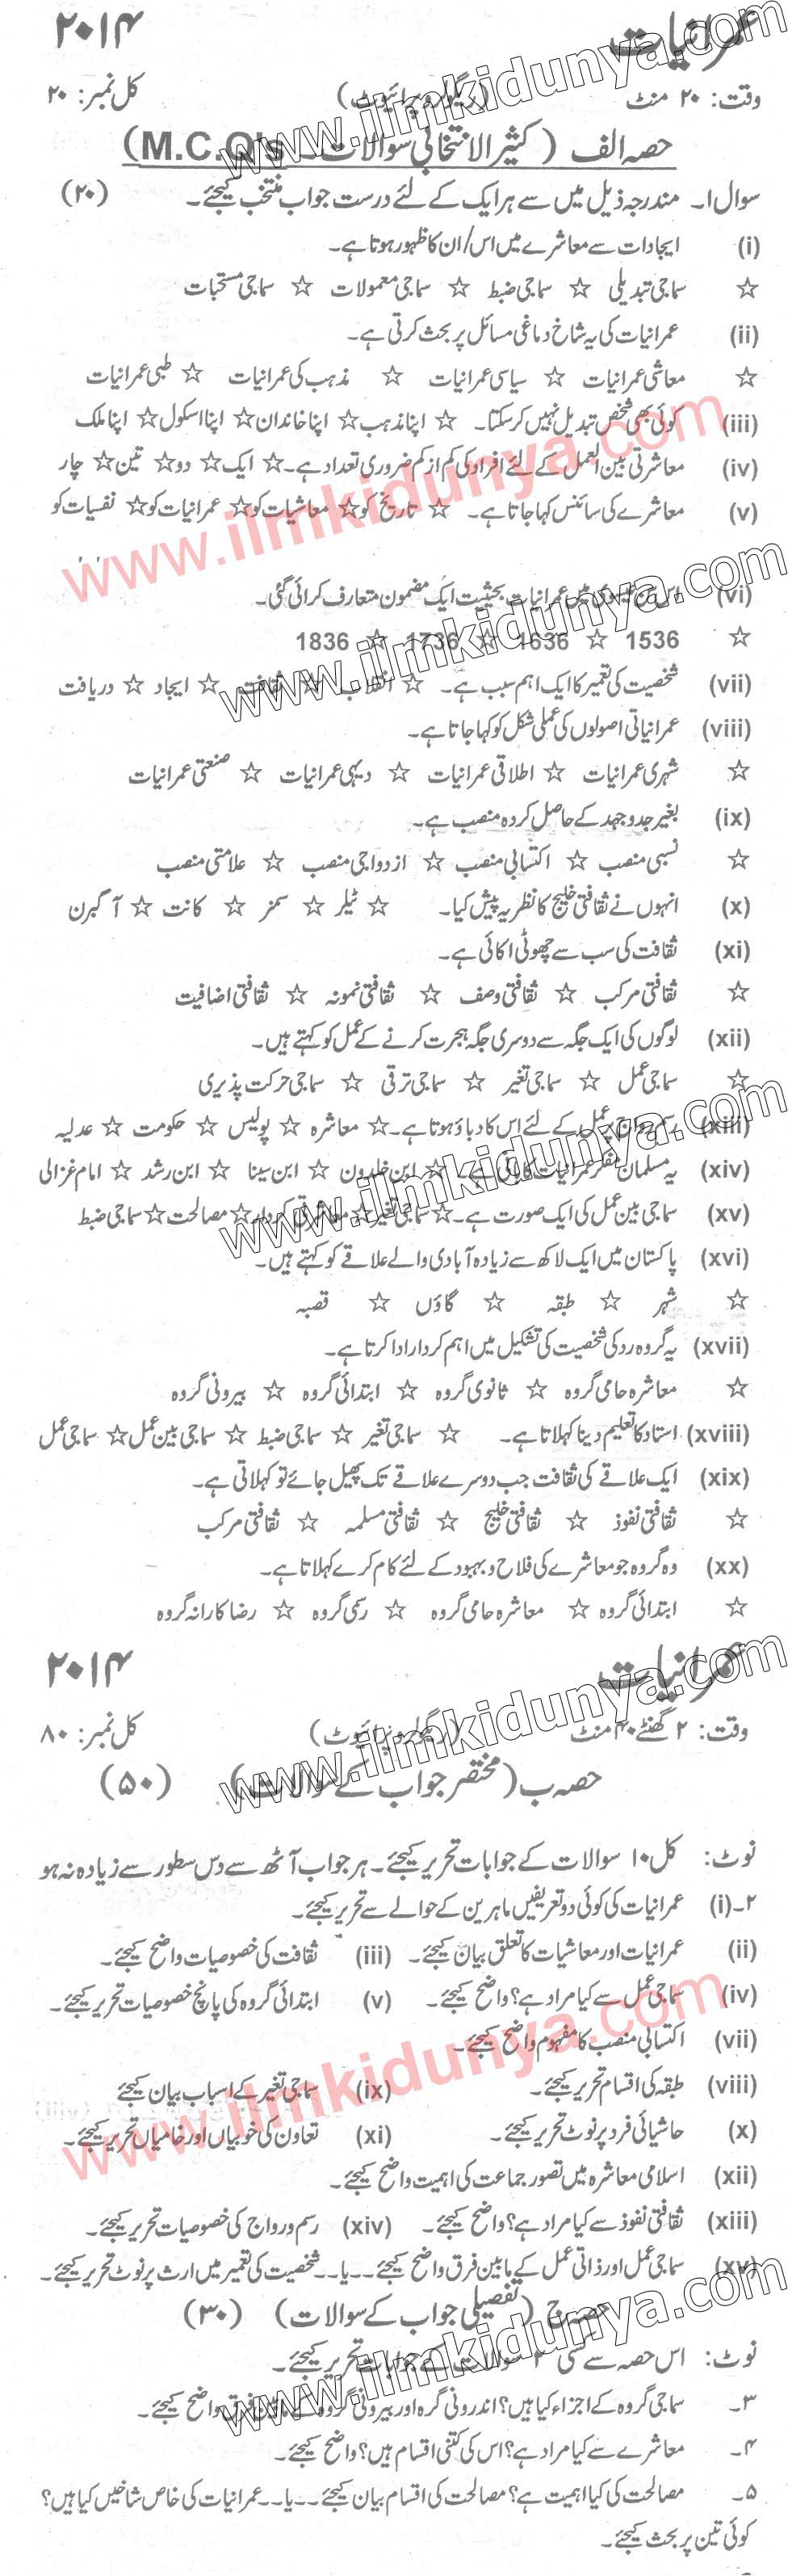 عمرانیات ۲۰۱۴
وقت: ۲۰ منٹ (ریگولر و پرائیوٹ) کل نمبر: ۲۰
حصہ الف (کثیر الانتخابی سوالات - M.C.Q's)
سوال ۱۔ مندرجہ ذیل میں سے ہر ایک کے لئے درست جواب منتخب کیجئے۔ (۲۰)
(i) ایجادات سے معاشرے میں اس/ان کا ظہور ہوتا ہے۔
☆ سماجی تبدیلی ☆ سماجی ضبط ☆ سماجی معمولات ☆ سماجی مستحبات
(ii) عمرانیات کی یہ شاخ دماغی مسائل پر بحث کرتی ہے۔
☆ معاشی عمرانیات ☆ سیاسی عمرانیات ☆ مذہب کی عمرانیات ☆ طبی عمرانیات
(iii) کوئی بھی شخص تبدیل نہیں کر سکتا۔ ☆ اپنا مذہب ☆ اپنا خاندان ☆ اپنا اسکول ☆ اپنا ملک
(iv) معاشرتی بین العمل کے لئے افراد کی کم از کم ضروری تعداد ہے۔ ☆ ایک ☆ دو ☆ تین ☆ چار
(v) معاشرے کی سائنس کہا جاتا ہے۔ ☆ تاریخ کو ☆ معاشیات کو ☆ عمرانیات کو ☆ نفسیات کو
(vi) اس سن عیسوی میں عمرانیات بحیثیت ایک مضمون متعارف کرائی گئی۔
☆ 1536 ☆ 1636 ☆ 1736 ☆ 1836
(vii) شخصیت کی تعمیر کا ایک اہم سبب ہے۔ ☆ انقلاب ☆ ثقافت ☆ ایجاد ☆ دریافت
(viii) عمرانیاتی اصولوں کی عملی شکل کو کہا جاتا ہے۔
☆ شہری عمرانیات ☆ اطلاقی عمرانیات ☆ دیہی عمرانیات ☆ صنعتی عمرانیات
(ix) بغیر جدوجہد کے حاصل کردہ منصب ہے۔
☆ نسبی منصب ☆ اکتسابی منصب ☆ ازدواجی منصب ☆ علامتی منصب
(x) انہوں نے ثقافتی خلیج کا نظریہ پیش کیا۔ ☆ ٹیلر ☆ سمنر ☆ کانت ☆ آگبرن
(xi) ثقافت کی سب سے چھوٹی اکائی ہے۔
☆ ثقافتی مرکب ☆ ثقافتی وصف ☆ ثقافتی نمونہ ☆ ثقافتی اضافیت
(xii) لوگوں کی ایک جگہ سے دوسری جگہ ہجرت کرنے کے عمل کو کہتے ہیں۔
☆ سماجی عمل ☆ سماجی تغیر ☆ سماجی ترقی ☆ سماجی حرکت پذیری
(xiii) رسم و رواج پر عمل کے لئے اس کا دباؤ ہوتا ہے۔ ☆ معاشرہ ☆ پولیس ☆ حکومت ☆ عدلیہ
(xiv) یہ مسلمان مفکر عمرانیات کا بانی ہے۔ ☆ ابن خلدون ☆ ابن سینا ☆ ابن رشد ☆ امام غزالی
(xv) سماجی بین عمل کی ایک صورت ہے۔ ☆ سماجی تغیر ☆ معاشرتی کردار ☆ مصالحت ☆ سماجی ضبط
(xvi) پاکستان میں ایک لاکھ سے زیادہ آبادی والے علاقے کو کہتے ہیں۔
☆ شہر ☆ طبقہ ☆ گاؤں ☆ قصبہ
(xvii) یہ گروہ رد کی شخصیت کی تشکیل میں اہم کردار ادا کرتا ہے۔
☆ معاشرہ حامی گروہ ☆ ثانوی گروہ ☆ ابتدائی گروہ ☆ بیرونی گروہ
(xviii) استاد کا تعلیم دینا کہلاتا ہے۔ ☆ سماجی تغیر ☆ سماجی ضبط ☆ سماجی بین عمل ☆ سماجی عمل
(xix) ایک علاقے کی ثقافت جب دوسرے علاقے تک پھیل جائے تو کہلاتی ہے۔
☆ ثقافتی نفوذ ☆ ثقافتی خلیج ☆ ثقافتی مسلمہ ☆ ثقافتی مرکب
(xx) وہ گروہ جو معاشرے کی فلاح و بہبود کے لئے کام کرے کہلاتا ہے۔
☆ ابتدائی گروہ ☆ معاشرہ حامی گروہ ☆ رسمی گروہ ☆ رضا کارانہ گروہ
عمرانیات ۲۰۱۴
وقت: ۲ گھنٹے ۴۰ منٹ (ریگولر و پرائیوٹ) کل نمبر: ۸۰
حصہ ب (مختصر جواب کے سوالات) (۵۰)
نوٹ: کل ۱۰ سوالات کے جوابات تحریر کیجئے۔ ہر جواب آٹھ سے دس سطور سے زیادہ نہ ہو
۲۔(i) عمرانیات کی کوئی دو تعریفیں ماہرین کے حوالے سے تحریر کیجئے۔
(ii) عمرانیات اور معاشیات کا تعلق بیان کیجئے۔ (iii) ثقافت کی خصوصیات واضح کیجئے۔
(iv) سماجی عمل سے کیا مراد ہے؟ واضح کیجئے۔ (v) ابتدائی گروہ کی پانچ خصوصیات تحریر کیجئے۔
(vii) اکتسابی منصب کا مفہوم واضح کیجئے۔
(viii) طبقہ کی اقسام تحریر کیجئے۔ (ix) سماجی تغیر کے اسباب بیان کیجئے
(x) حاشیائی فرد پر نوٹ تحریر کیجئے۔ (xi) تعاون کی خوبیاں اور خامیاں تحریر کیجئے۔
(xii) اسلامی معاشرہ میں تصور جماعت کی اہمیت واضح کیجئے۔
(xiii) ثقافتی نفوذ سے کیا مراد ہے؟ واضح کیجئے۔ (xiv) رسم و رواج کی خصوصیات تحریر کیجئے۔
(xv) سماجی عمل اور ذاتی عمل کے مابین فرق واضح کیجئے۔۔یا۔۔شخصیت کی تعمیر میں ارث پر نوٹ تحریر کیجئے۔
حصہ ج (تفصیلی جواب کے سوالات) (۳۰)
نوٹ: اس حصہ سے کسی ۲ سوالات کے جوابات تحریر کیجئے۔
۳۔ سماجی گروہ کے اجزاء کیا ہیں؟ اندرونی گرہ اور بیرونی گروہ کے مابین فرق واضح کیجئے۔
۴۔ معاشرے سے کیا مراد ہے؟ اس کی کتنی اقسام ہیں؟ واضح کیجئے۔
۵۔ مصالحت کی کیا اہمیت ہے؟ مصالحت کی اقسام بیان کیجئے۔۔یا۔۔عمرانیات کی خاص شاخیں کیا ہیں؟
کوئی تین پر بحث کیجئے۔
www.ilmkidunya.com
www.ilmkidunya.com
www.ilmkidunya.com
www.ilmkidunya.com
www.ilmkidunya.com
www.ilmkidunya.com
www.ilmkidunya.com